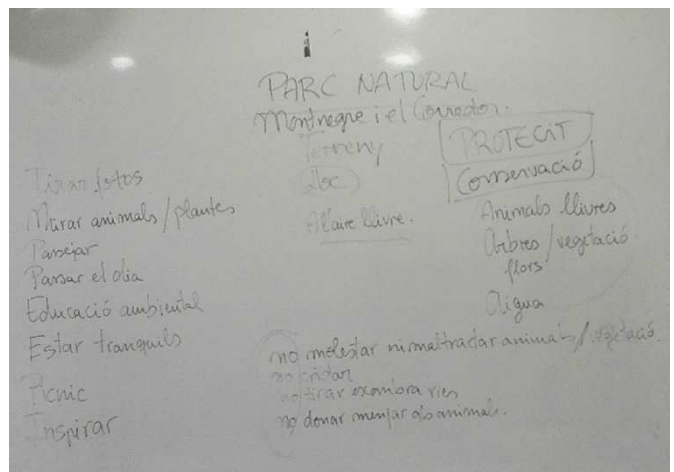 PARC NATURAL
Montnegre i el Corredor.
Terreny
lloc
Al'aire lliure.
PROTEGIT
Conservació
Animals lliures
Arbres / vegetació
flors
Aigua
Tirar fotos
Mirar animals / plantes
Passejar
Passar el dia
Educació ambiental
Estar tranquils
Picnic
Inspirar
no molestar ni maltractar animals / vegetació.
no cridar
no tirar escombraries
no donar menjar als animals.